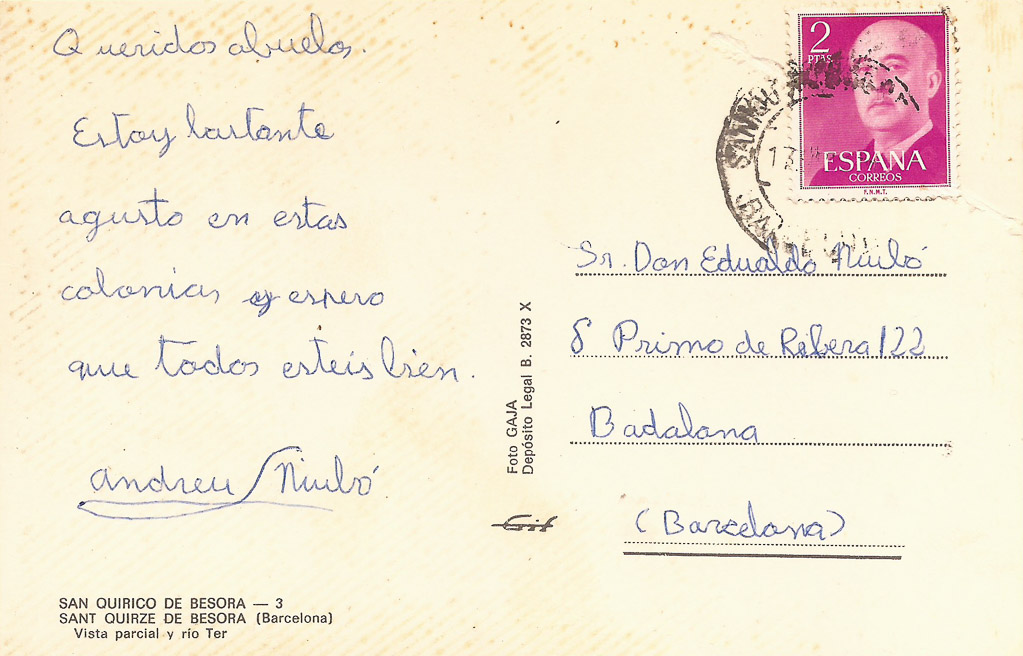 Queridos abuelos.
Estoy bastante
agusto en estas
colonias y espero
que todos estéis bien.
andreu Niubó
SAN QUIRICO DE BESORA — 3
SANT QUIRZE DE BESORA (Barcelona)
Vista parcial y río Ter
Foto GAJA
Depósito Legal B. 2873 X
Gif
2
PTAS
ESPAÑA
CORREOS
F.N.M.T.
Sr. Don Edualdo Niubó
Primo de Ribera 122
Badalona
(Barcelona)